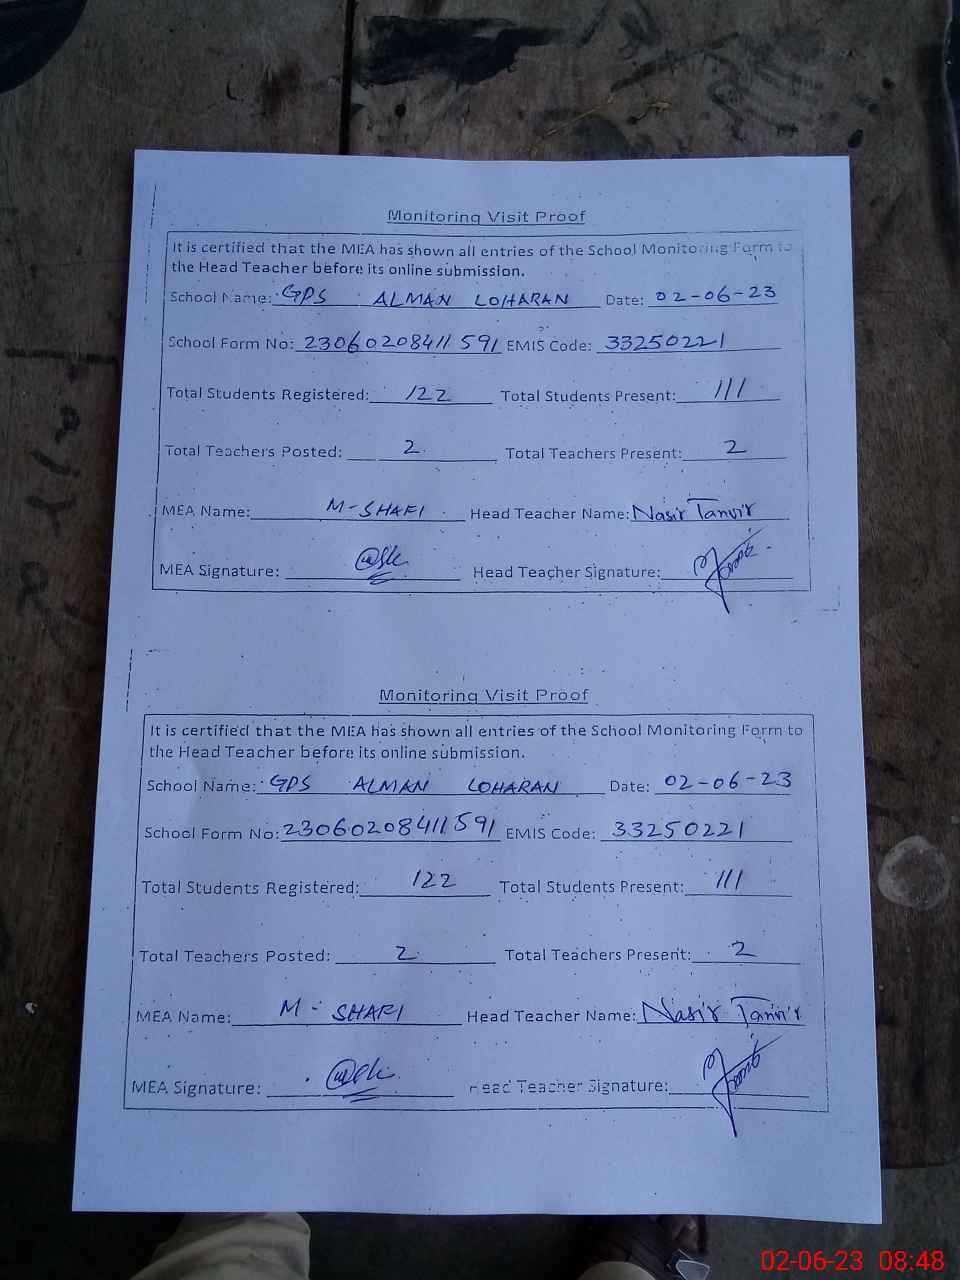 Monitoring Visit Proof
It is certified that the MEA has shown all entries of the School Monitoring Form to
the Head Teacher before its online submission.
School Name: GPS ALMAN LOHARAN Date: 02-06-23
School Form No: 23060208411591 EMIS Code: 33250221
Total Students Registered: 122 Total Students Present: 111
Total Teachers Posted: 2 Total Teachers Present: 2
MEA Name: M-SHAFI Head Teacher Name: Nasir Tanvir
MEA Signature: Head Teacher Signature:
Monitoring Visit Proof
It is certified that the MEA has shown all entries of the School Monitoring Form to
the Head Teacher before its online submission.
School Name: GPS ALMAN LOHARAN Date: 02-06-23
School Form No: 23060208411591 EMIS Code: 33250221
Total Students Registered: 122 Total Students Present: 111
Total Teachers Posted: 2 Total Teachers Present: 2
MEA Name: M-SHAFI Head Teacher Name: Nasir Tanvir
MEA Signature: Head Teacher Signature:
02-06-23 08:48